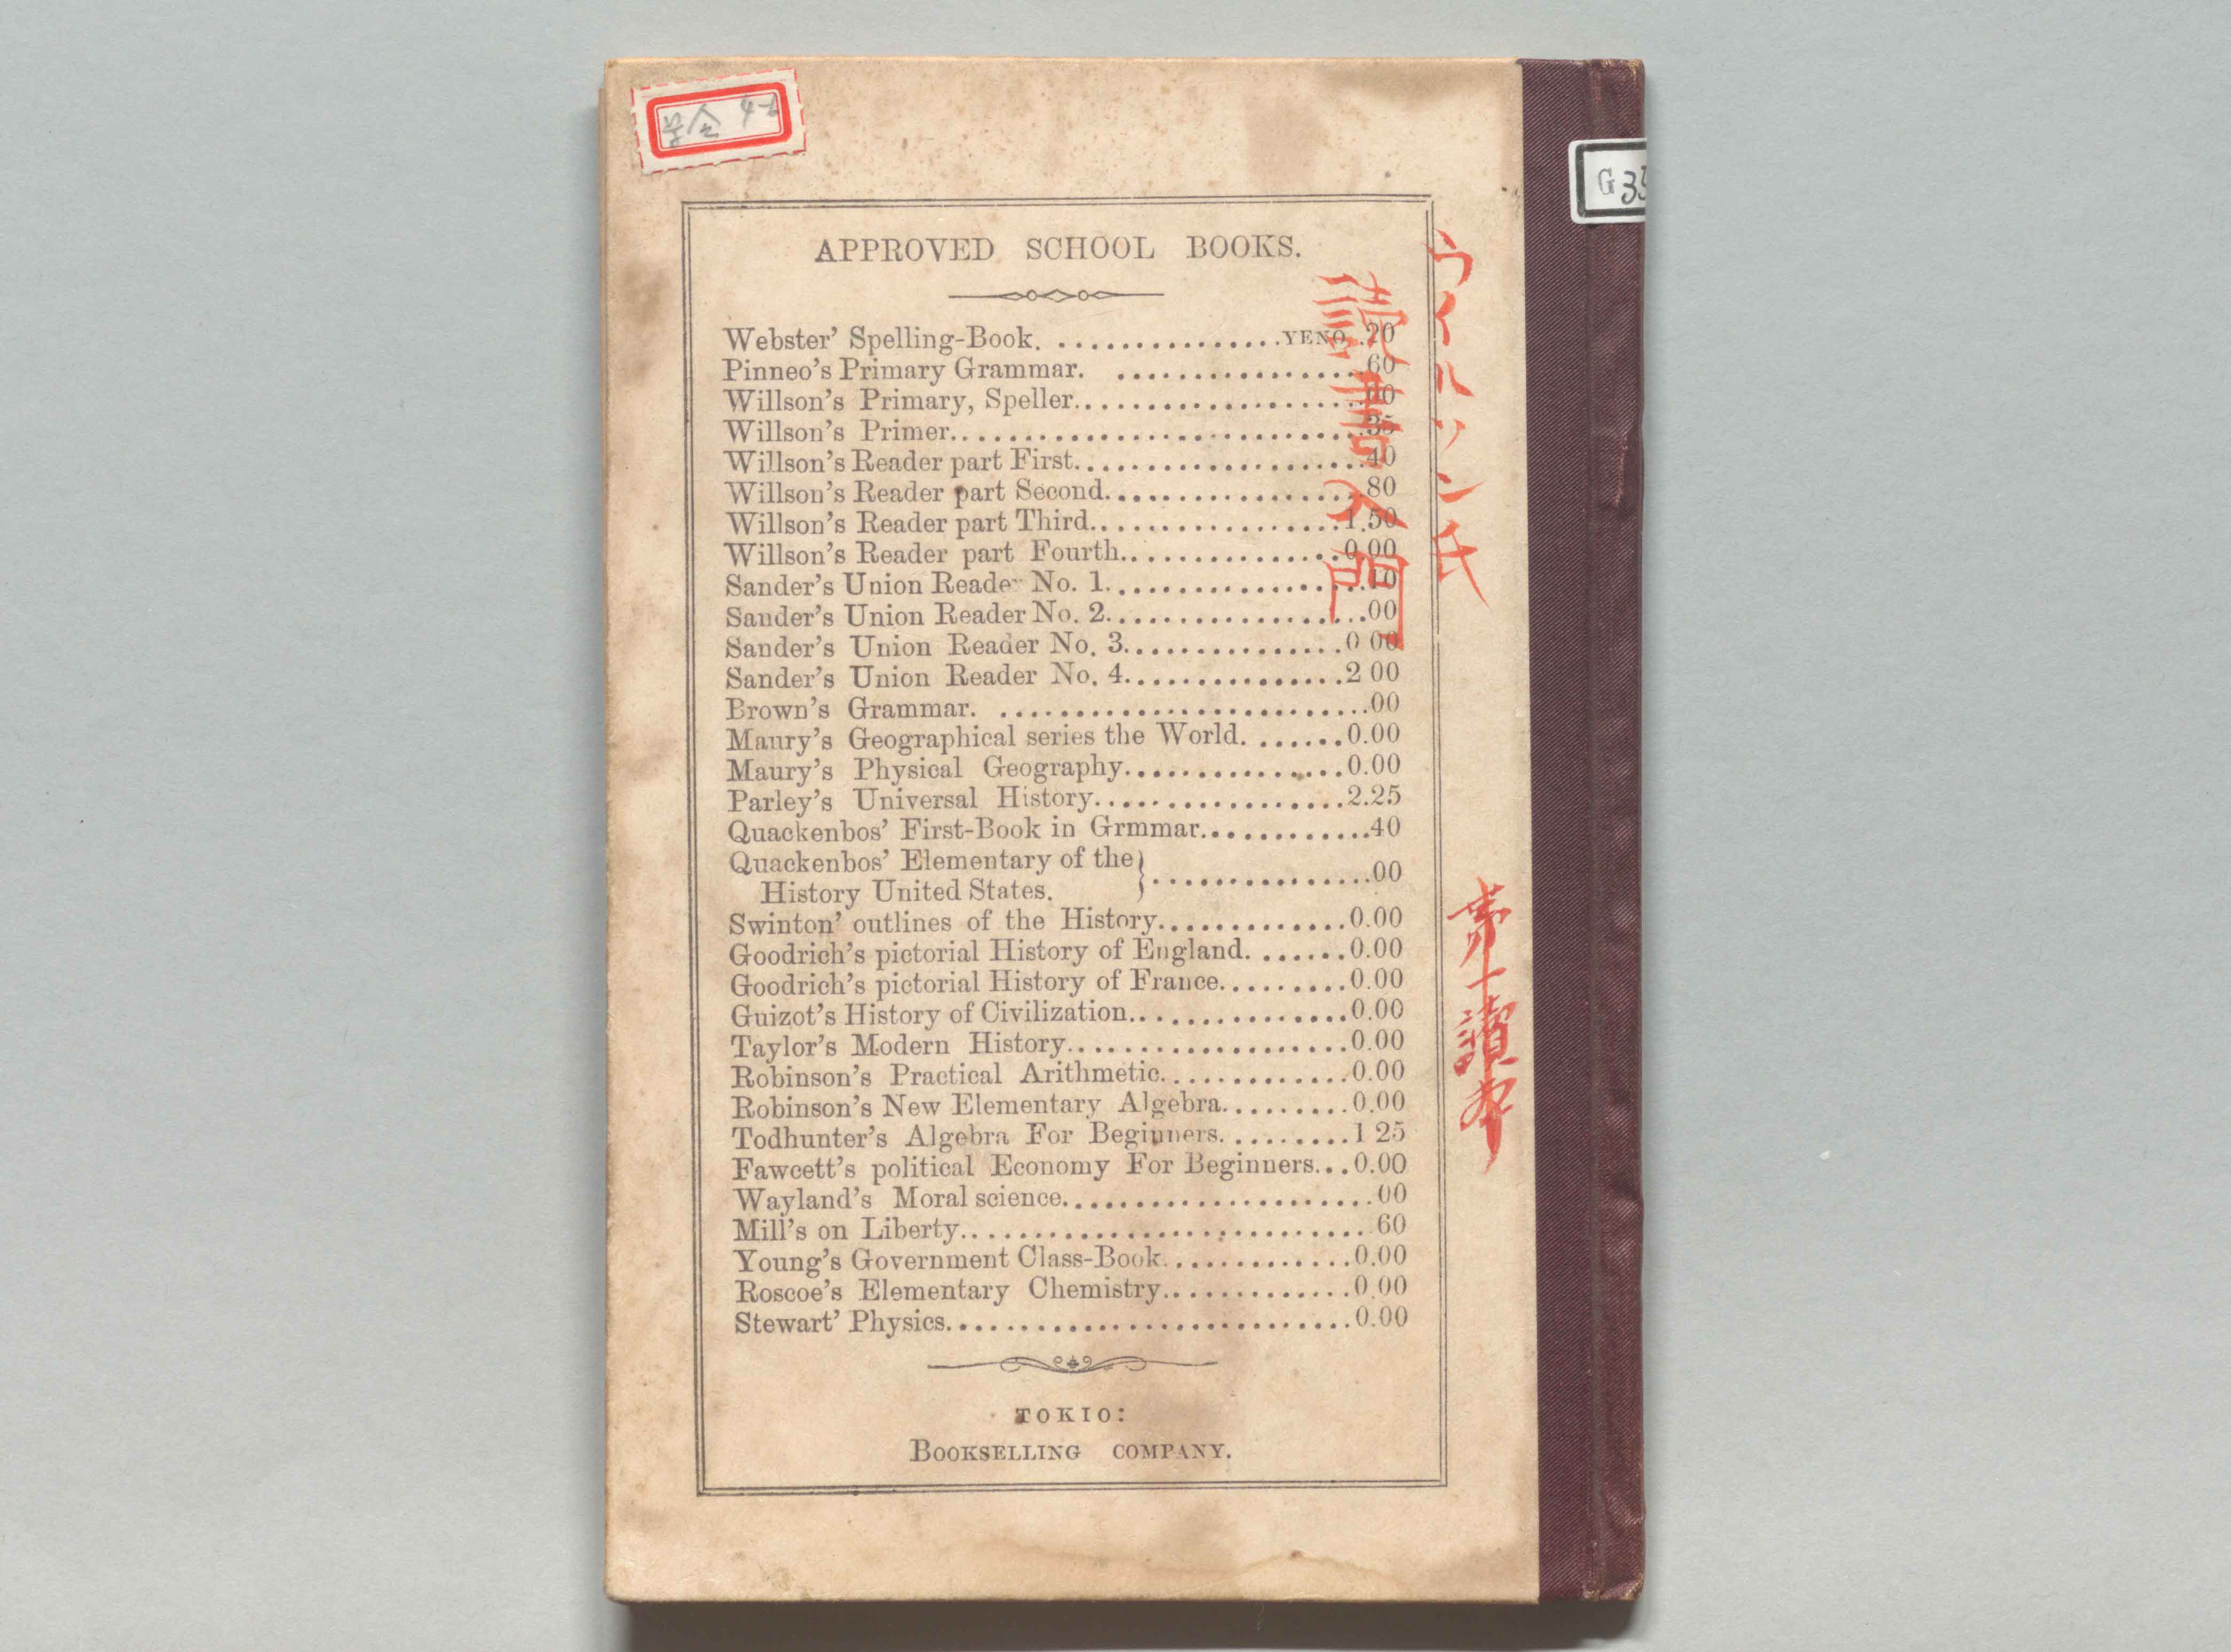 APPROVED SCHOOL BOOKS.
Webster' Spelling-Book. ................YENO .20
Pinneo's Primary Grammar. .................60
Willson's Primary, Speller....................
Willson's Primer............................35
Willson's Reader part First....................40
Willson's Reader part Second..................80
Willson's Reader part Third.................1.50
Willson's Reader part Fourth...............0.00
Sander's Union Reader No. 1..................10
Sander's Union Reader No. 2..................00
Sander's Union Reader No. 3...............0 00
Sander's Union Reader No. 4...............2 00
Brown's Grammar. .........................00
Maury's Geographical series the World. ......0.00
Maury's Physical Geography...............0.00
Parley's Universal History..................2.25
Quackenbos' First-Book in Grmmar............40
Quackenbos' Elementary of the
History United States. } ...............00
Swinton' outlines of the History.............0.00
Goodrich's pictorial History of England. ......0.00
Goodrich's pictorial History of France.........0.00
Guizot's History of Civilization...............0.00
Taylor's Modern History...................0.00
Robinson's Practical Arithmetic.............0.00
Robinson's New Elementary Algebra.........0.00
Todhunter's Algebra For Beginners.........1 25
Fawcett's political Economy For Beginners...0.00
Wayland's Moral science.....................00
Mill's on Liberty............................60
Young's Government Class-Book.............0.00
Roscoe's Elementary Chemistry.............0.00
Stewart' Physics............................0.00
TOKIO:
BOOKSELLING COMPANY.
ウイルソン氏
読書入門
讀本
G 35